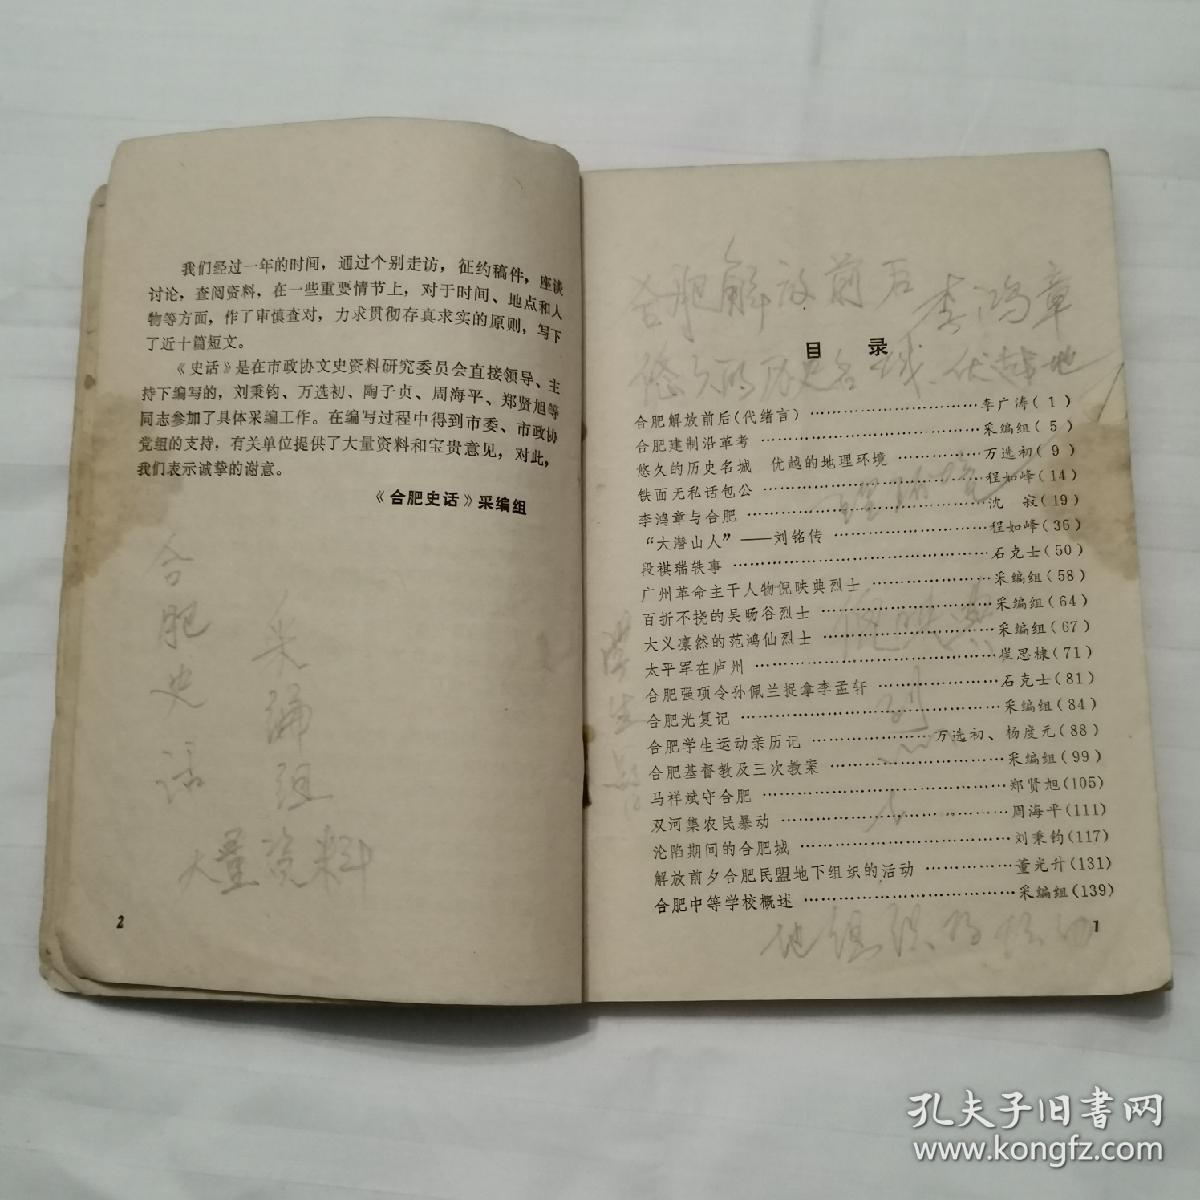 我们经过一年的时间，通过个别走访，征约稿件，座谈
讨论，查阅资料，在一些重要情节上，对于时间、地点和人
物等方面，作了审慎查对，力求贯彻存真求实的原则，写下
了近十篇短文。
《史话》是在市政协文史资料研究委员会直接领导、主
持下编写的，刘秉钧、万选初、陶子贞、周海平、郑贤旭等
同志参加了具体采编工作。在编写过程中得到市委、市政协
党组的支持，有关单位提供了大量资料和宝贵意见，对此，
我们表示诚挚的谢意。
《合肥史话》采编组
合肥史话
采编组
大量资料
2
合肥解放前后 李鸿章
目 录
悠久的历史名城
合肥解放前后(代绪言)……………………李广涛(1)
合肥建制沿革考……………………采编组(5)
悠久的历史名城 优越的地理环境……………万选初(9)
铁面无私话包公……………………程如峰(14)
李鸿章与合肥……………………沈 寂(19)
“大潜山人”——刘铭传……………………程如峰(36)
段祺瑞轶事……………………石克士(50)
广州革命主干人物倪映典烈士……………采编组(58)
百折不挠的吴旸谷烈士……………………采编组(64)
大义凛然的范鸿仙烈士……………………采编组(67)
太平军在庐州……………………崔思棣(71)
合肥强项令孙佩兰捉拿李孟轩……………石克士(81)
合肥光复记……………………采编组(84)
合肥学生运动亲历记……………万选初、杨度元(88)
合肥基督教及三次教案……………………采编组(99)
马祥斌守合肥……………………郑贤旭(105)
双河集农民暴动……………………周海平(111)
沦陷期间的合肥城……………………刘秉钧(117)
解放前夕合肥民盟地下组织的活动…………董光升(131)
合肥中等学校概述……………………采编组(139)
倪映典
1
孔夫子旧书网
www.kongfz.com